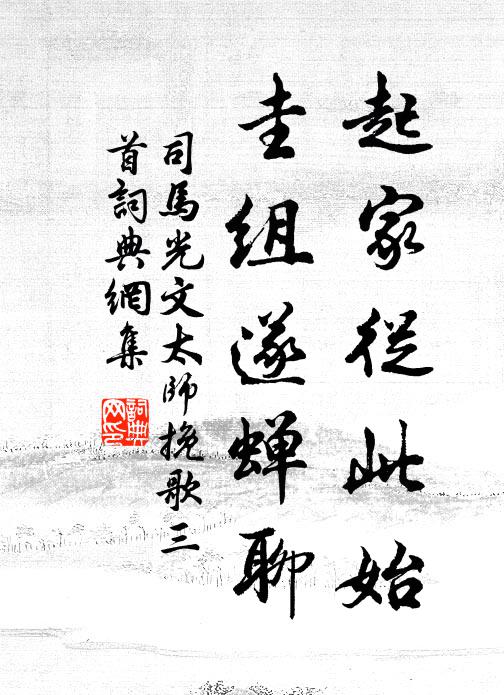 起家従此始
圭組遂蝉聊
司馬光文太師挽歌三
首詞典網集
詞典网印